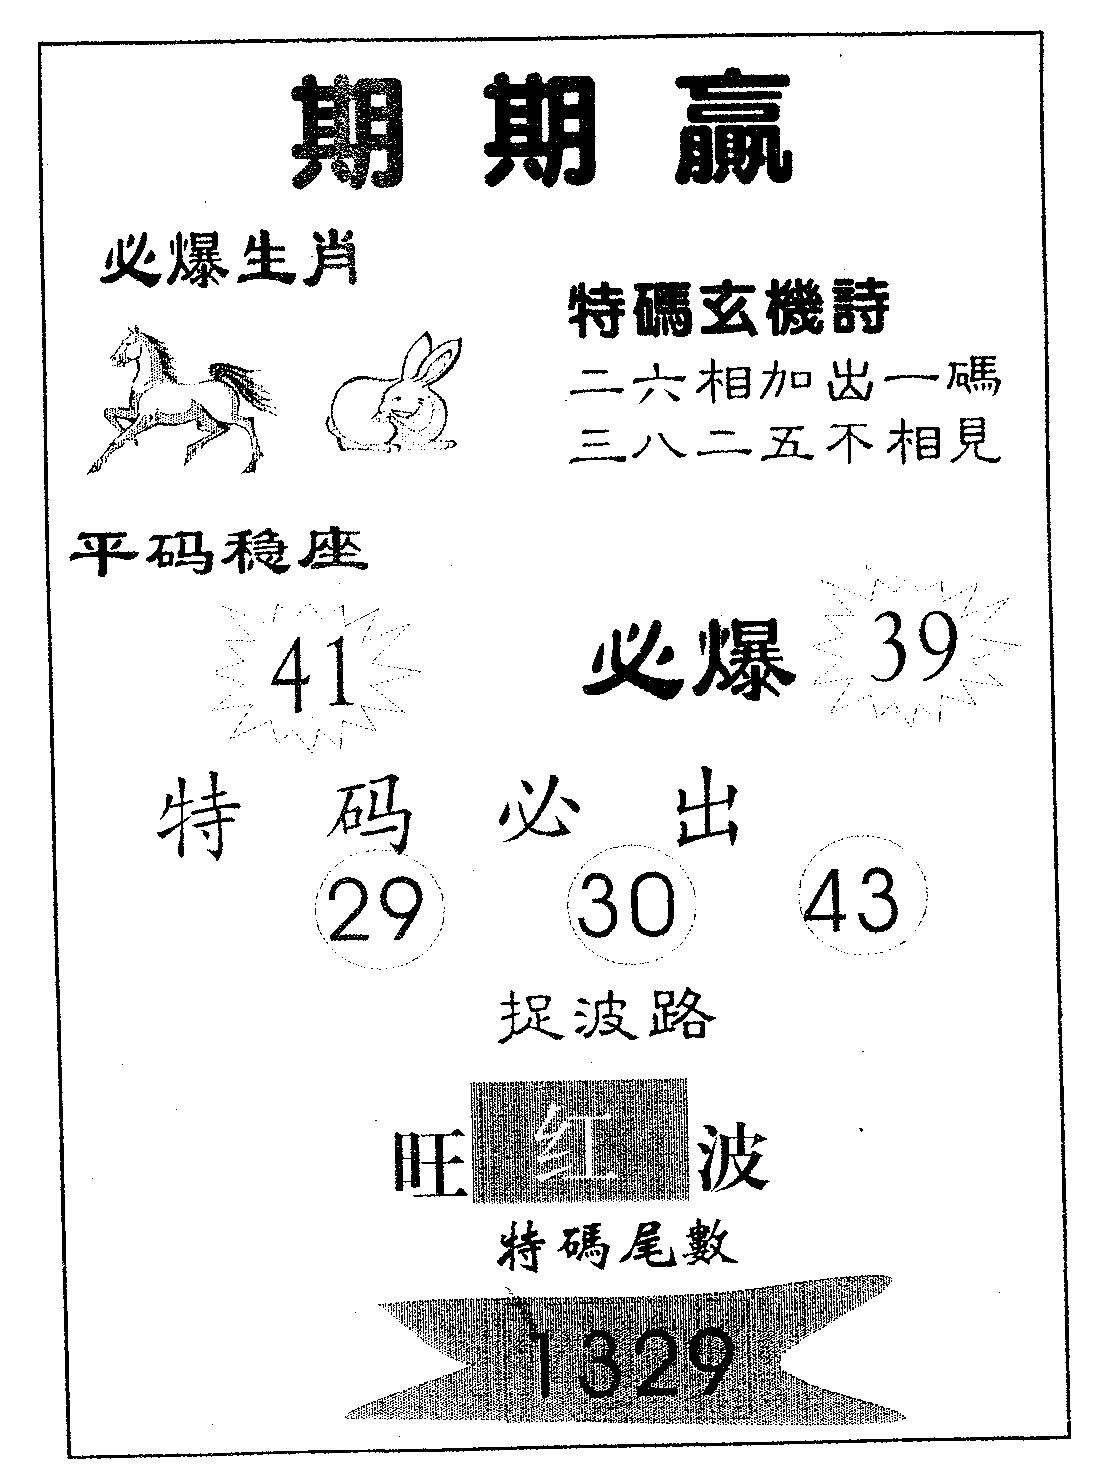 期期贏
必爆生肖
特碼玄機詩
二六相加出一碼
三八二五不相見
平码稳座
41
必爆 39
特码必出
29 30 43
捉波路
旺红波
特碼尾數
1329